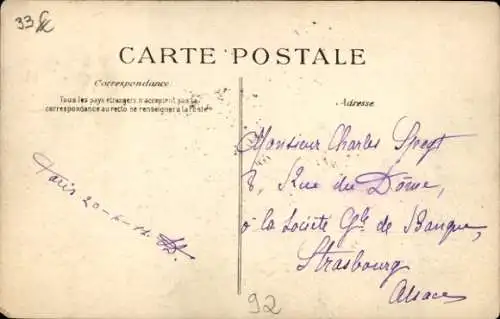 33
CARTE POSTALE
Correspondance
Tous les pays étrangers n'acceptent pas la
correspondance au recto se renseigner à la Poste
Adresse
Paris 20-6-11
Monsieur Charles Spegt
8, Rue du Dôme,
à la Société Gle de Banque,
Strasbourg
Alsace
92